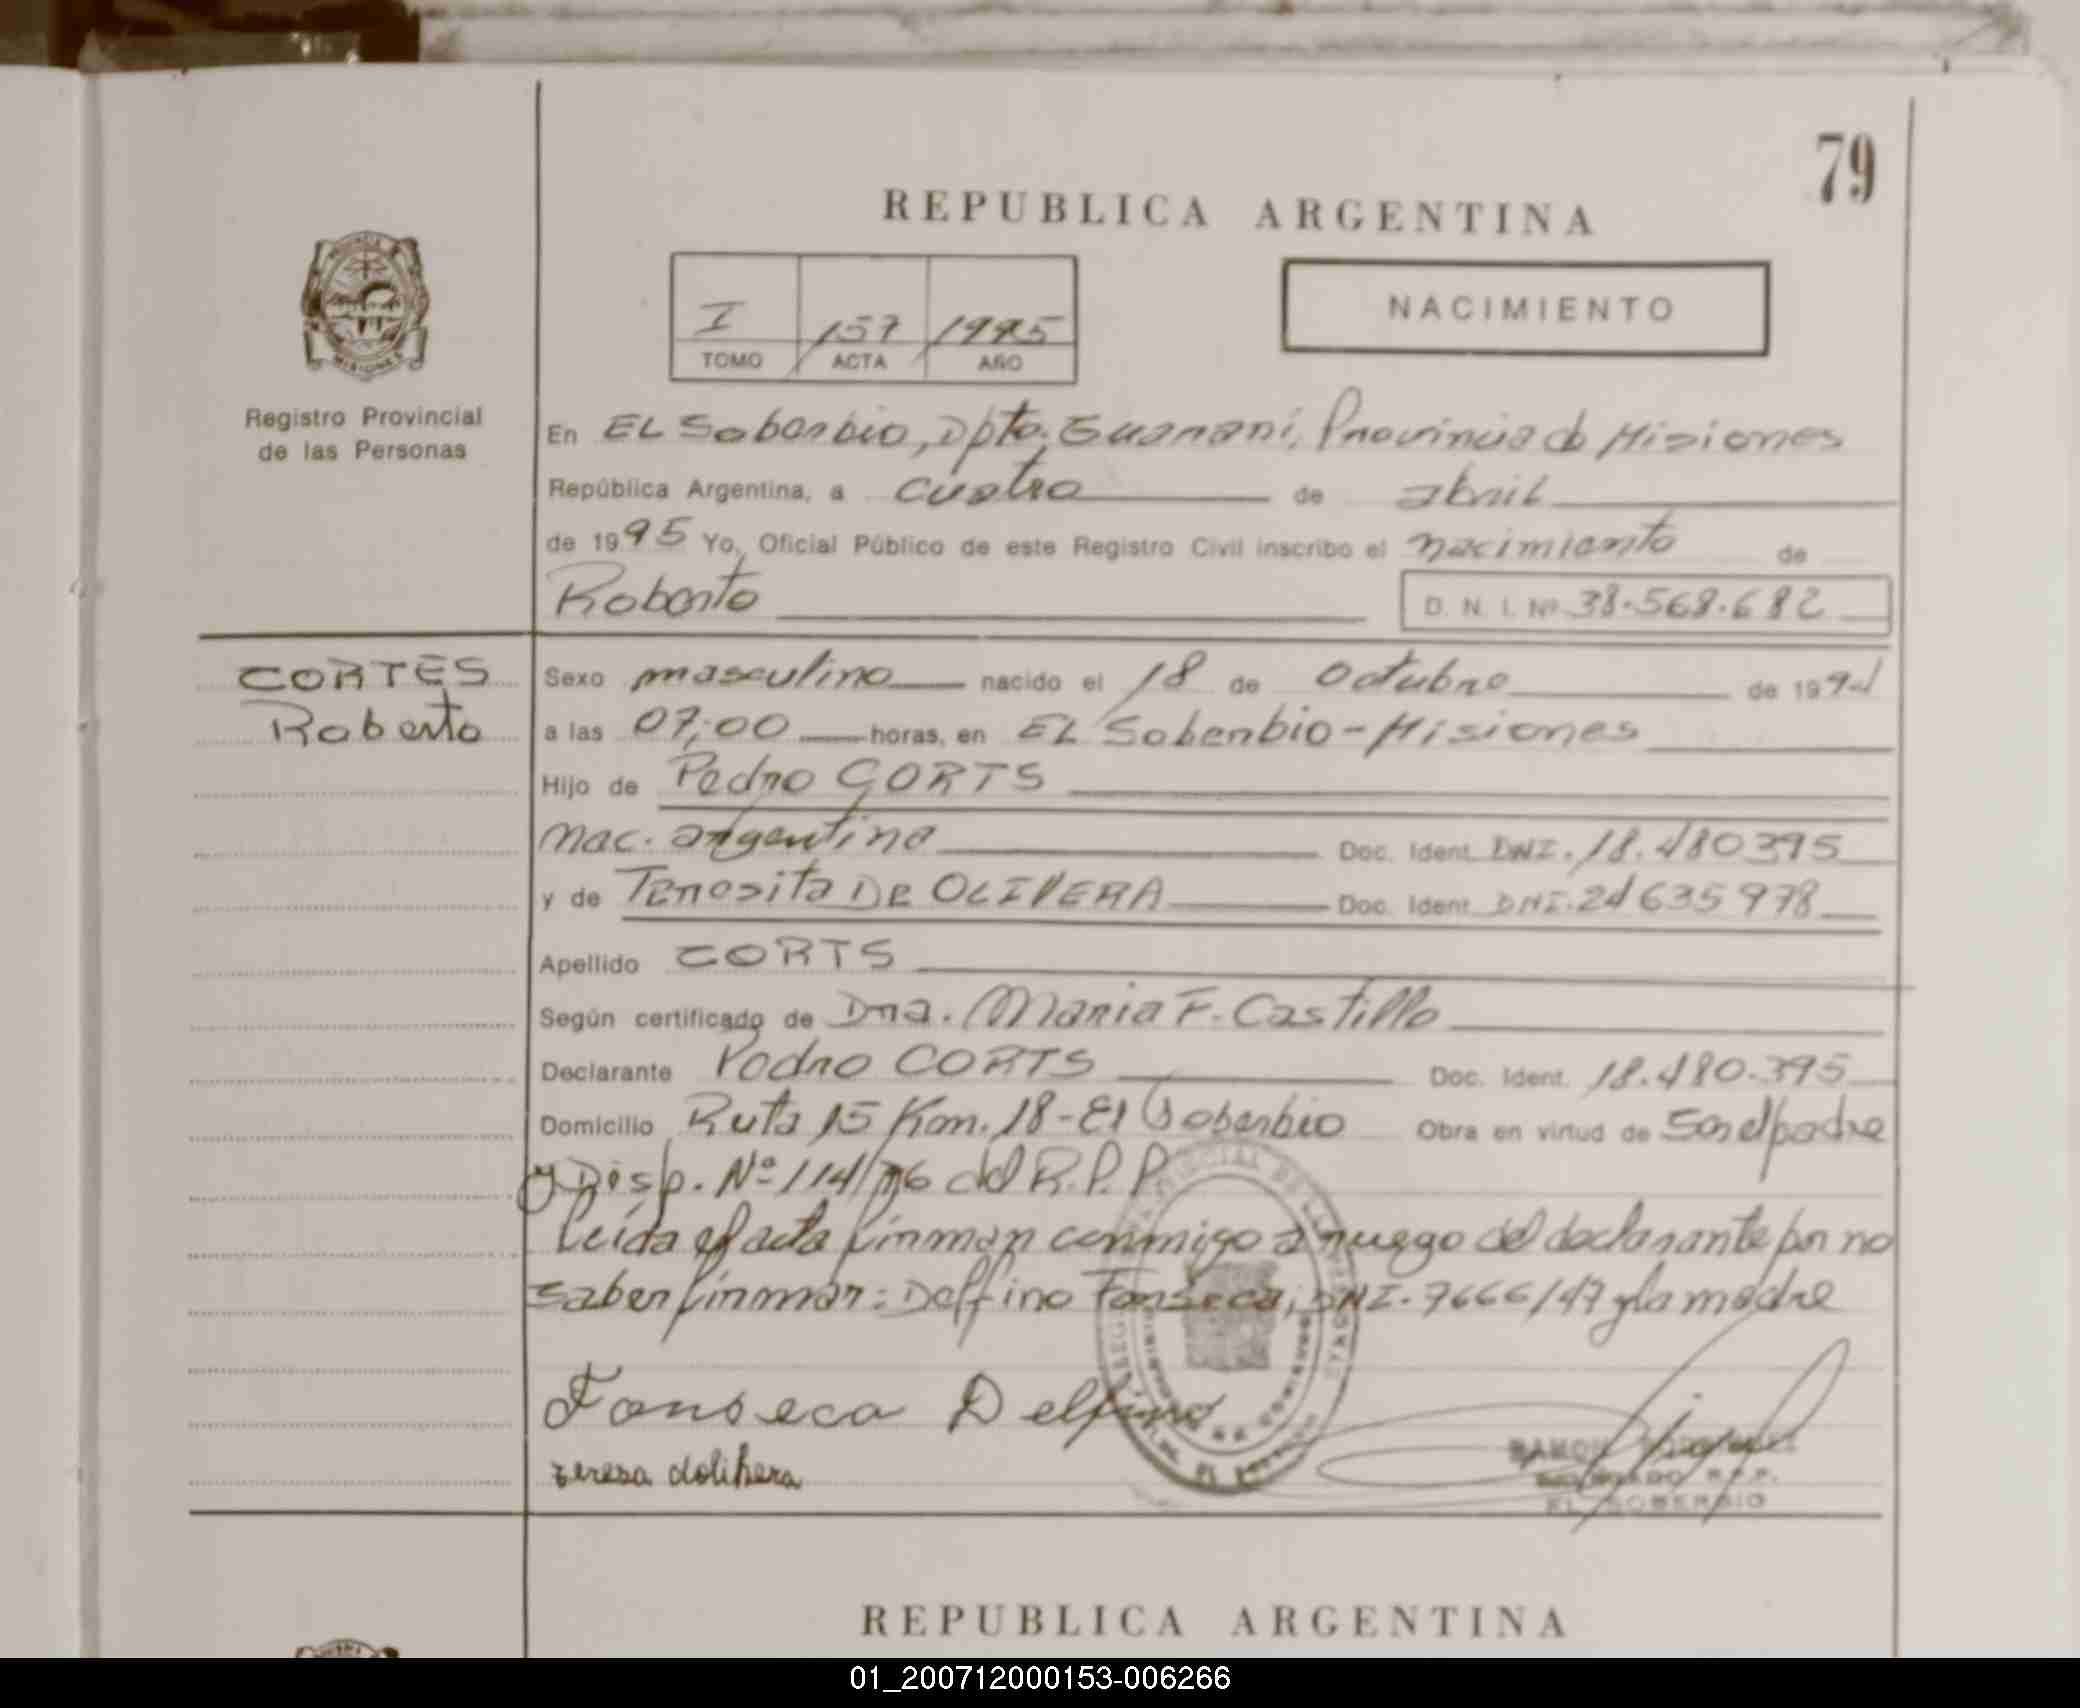 79
REPUBLICA ARGENTINA
I 157 1995
TOMO ACTA AÑO
NACIMIENTO
MISIONES
Registro Provincial
de las Personas
En EL Soberbio, Dpto. Guaraní, Provincia de Misiones
República Argentina, a cuatro de abril
de 1995 Yo, Oficial Público de este Registro Civil inscribo el nacimiento de
Roberto D. N. I. Nº 38.568.682
CORTES
Roberto
Sexo masculino nacido el 18 de Octubre de 1994
a las 07;00 horas, en EL Soberbio - Misiones
Hijo de Pedro CORTS
nac. argentina Doc. Ident. DNI. 18.480395
y de Teresita DE OLIVERA Doc. Ident. DNI. 24635978
Apellido CORTS
Según certificado de Dra. Maria F. Castillo
Declarante Pedro CORTS Doc. Ident. 18.480.395
Domicilio Ruta 15 Km. 18 - El Soberbio Obra en virtud de Ser el padre
y Disp. Nº 114/76 del R.P.P.
Leída el acta firman conmigo a ruego del declarante por no
saber firmar: Delfino Fonseca, DNI. 7666147 y la madre
Fonseca Delfino
teresa dolihera
RAMON
DELEGADO R.P.P.
EL SOBERBIO
REPUBLICA ARGENTINA
01_200712000153-006266